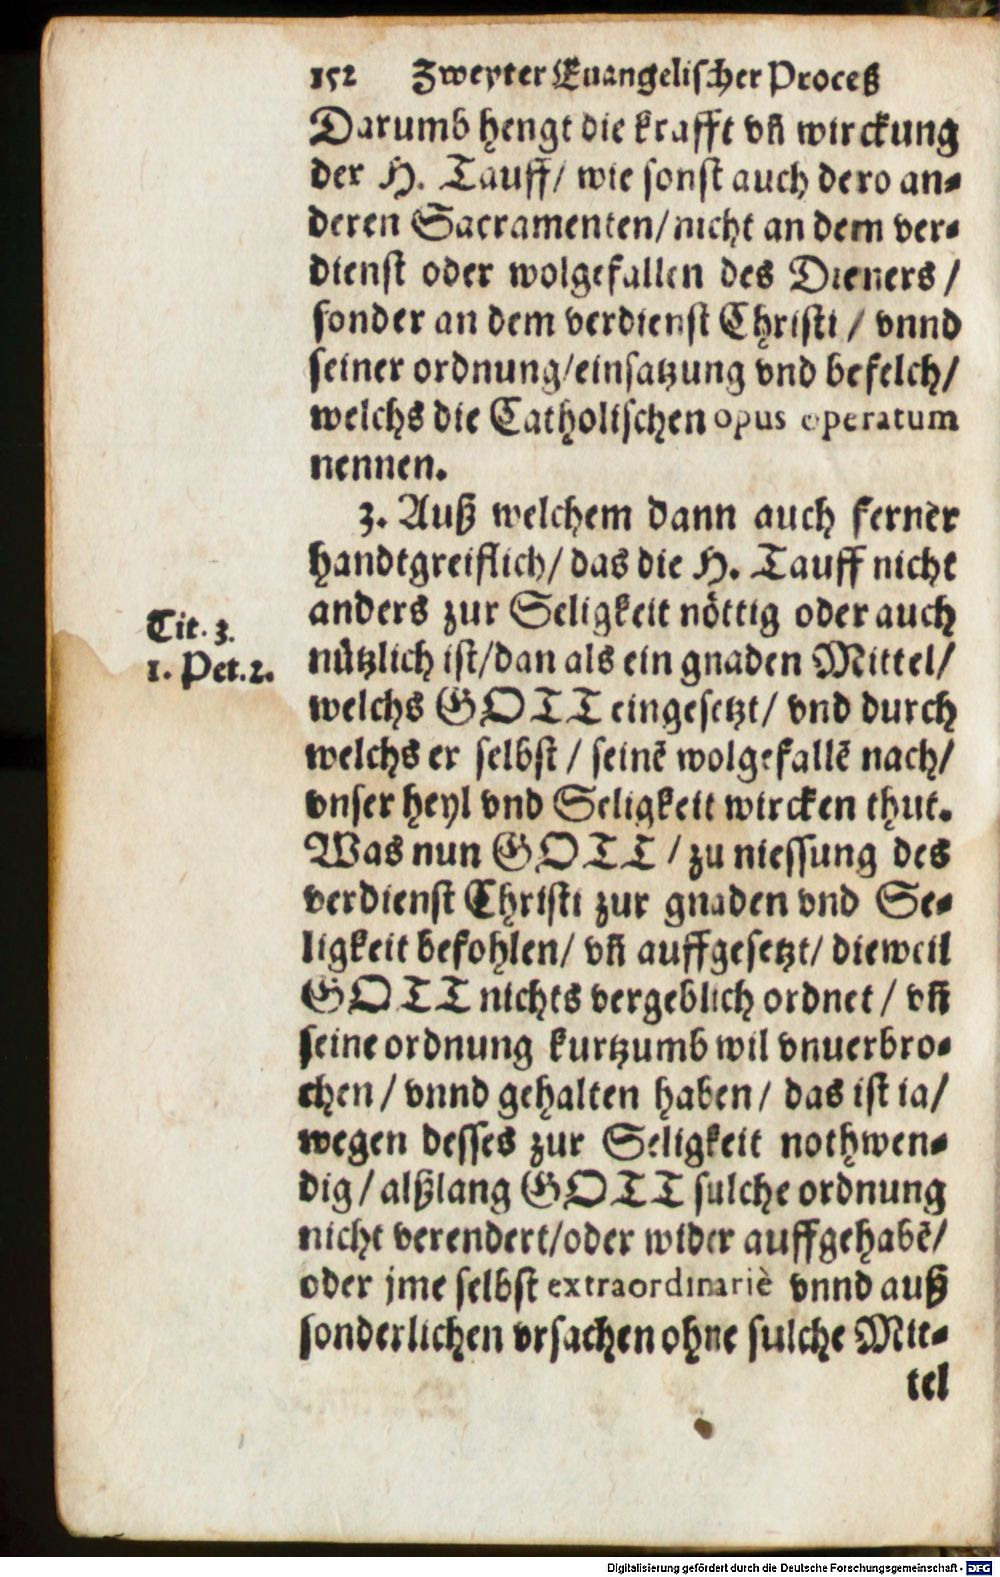 152 Zweyter Euangelischer Proceß
Darumb hengt die krafft vñ wirckung
der H. Tauff/ wie sonst auch dero an-
deren Sacramenten/ nicht an dem ver-
dienst oder wolgefallen des Dieners/
sonder an dem verdienst Christi/ vnnd
seiner ordnung/ einsatzung vnd befelch/
welchs die Catholischen opus operatum
nennen.
3. Auß welchem dann auch ferner
handtgreiflich/ das die H. Tauff nicht
anders zur Seligkeit nöttig oder auch
Tit. 3.
1. Pet. 2.
nützlich ist/ dan als ein gnaden Mittel/
welchs GOTT eingesetzt/ vnd durch
welchs er selbst/ seinē wolgefallē nach/
vnser heyl vnd Seligkeit wircken thut.
Was nun GOTT/ zu niessung des
verdienst Christi zur gnaden vnd Se-
ligkeit befohlen/ vñ auffgesetzt/ dieweil
GOTT nichts vergeblich ordnet/ vñ
seine ordnung kurtzumb wil vnuerbro-
chen/ vnnd gehalten haben/ das ist ia/
wegen desses zur Seligkeit nothwen-
dig/ alßlang GOTT sulche ordnung
nicht verendert/ oder wider auffgehabē/
oder jme selbst extraordinariè vnnd auß
sonderlichen vrsachen ohne sulche Mit-
tel
Digitalisierung gefördert durch die Deutsche Forschungsgemeinschaft - DFG